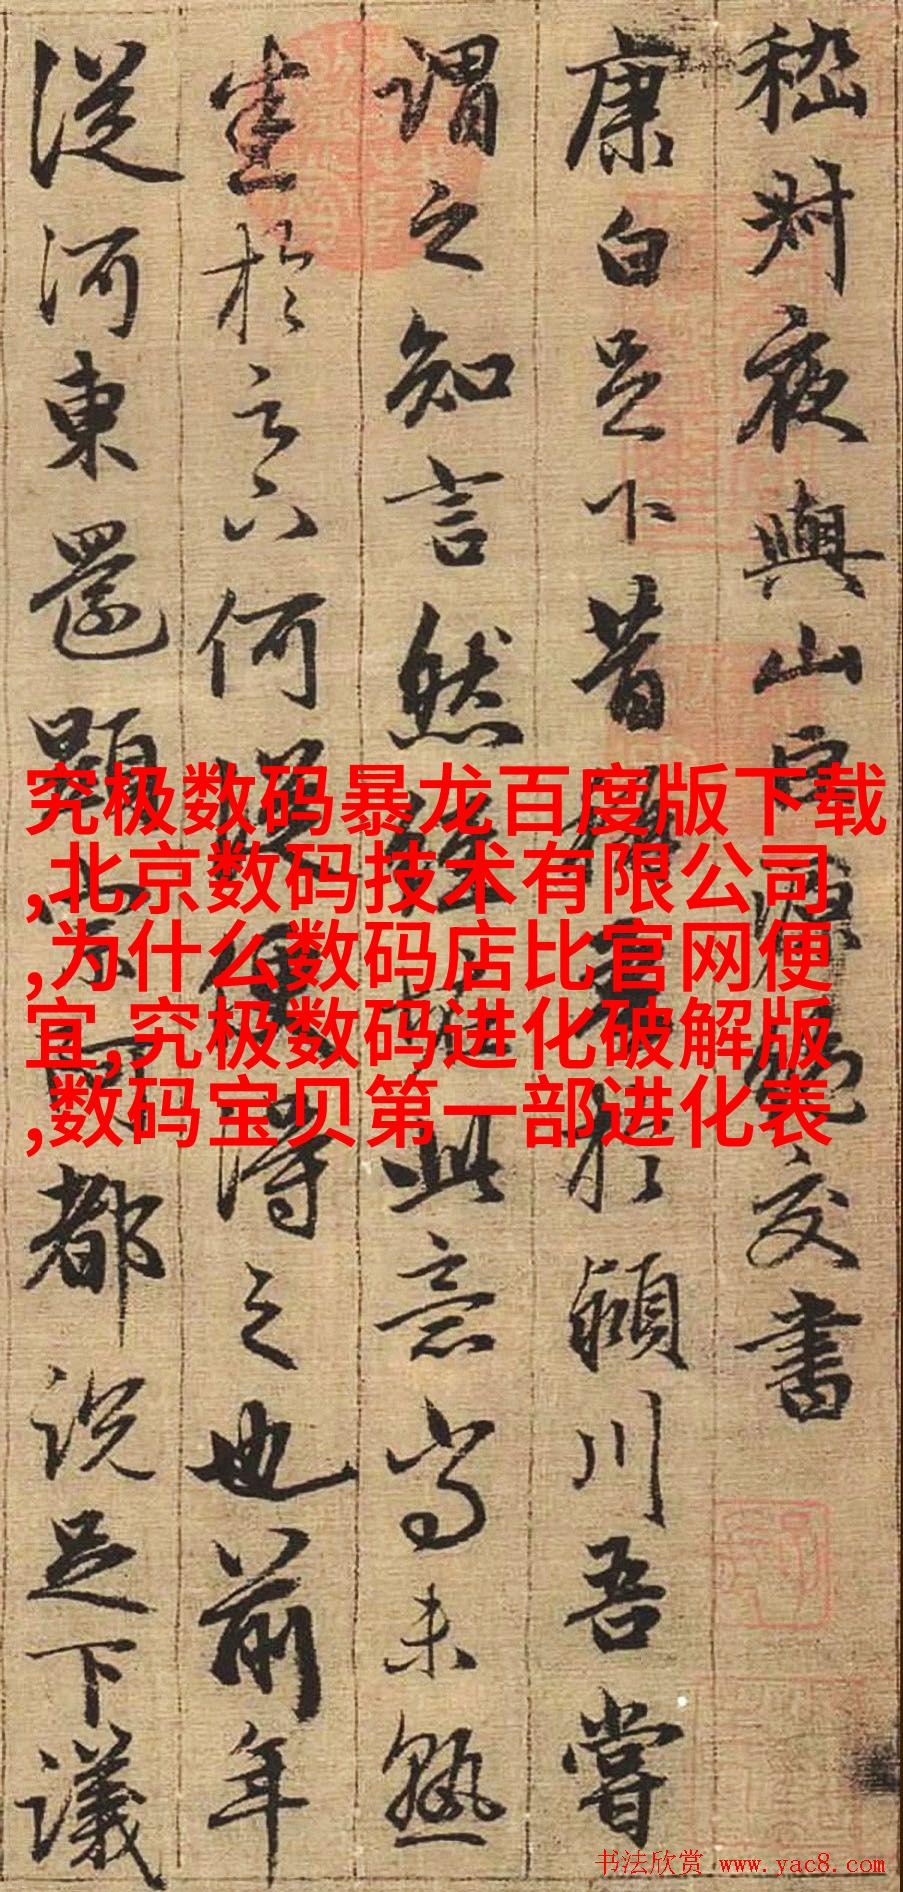 嵇叔夜與山巨源絕交書
康白足下昔稱吾於潁川吾嘗
謂之知言然經怪此意尚未熟
悉於足下何從便得之也前年
從河東還顯宗阿都說足下議
究极数码暴龙百度版下载
,北京数码技术有限公司
,为什么数码店比官网便
宜,究极数码进化破解版
,数码宝贝第一部进化表
书法欣赏 www.yac8.com